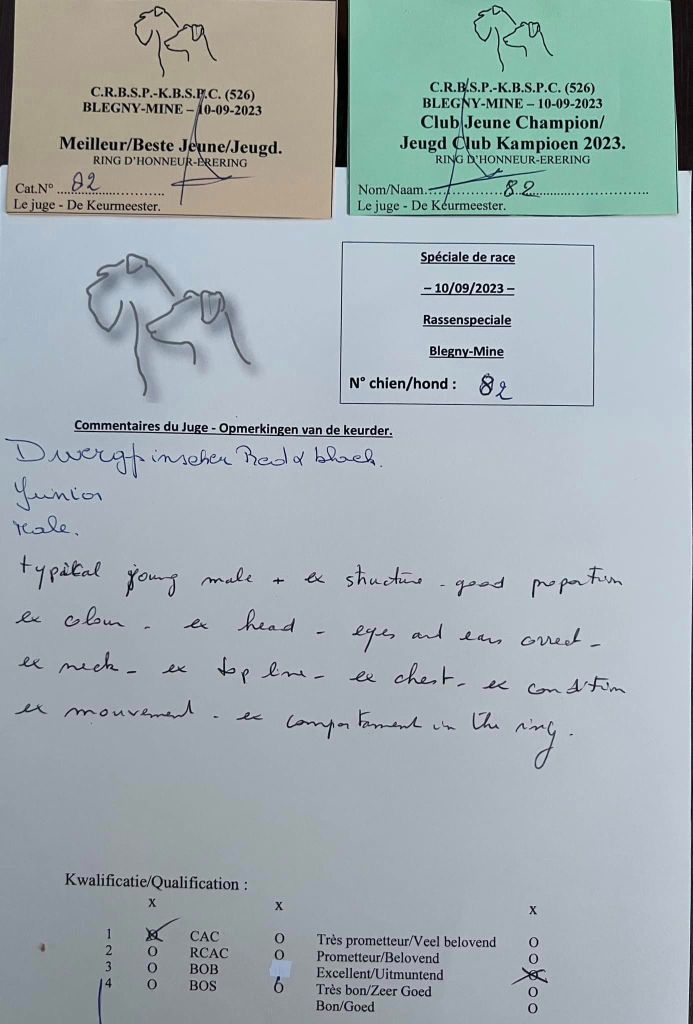 C.R.B.S.P.-K.B.S.P.C. (526)
BLEGNY-MINE – 10-09-2023
Meilleur/Beste Jeune/Jeugd.
RING D'HONNEUR-ERERING
Cat.N° 82
Le juge - De Keurmeester.
C.R.B.S.P.-K.B.S.P.C. (526)
BLEGNY-MINE – 10-09-2023
Club Jeune Champion/
Jeugd Club Kampioen 2023.
RING D'HONNEUR-ERERING
Nom/Naam 82
Le juge - De Keurmeester.
Spéciale de race
– 10/09/2023 –
Rassenspeciale
Blegny-Mine
N° chien/hond : 82
Commentaires du Juge - Opmerkingen van de keurder.
Dwergpinscher Red & black.
Junior
Male.
typical young male + ex structure - good proportion
ex colour - ex head - eyes and ears correct -
ex neck - ex top line - ex chest - ex condition
ex mouvement - ex comportament in the ring.
Kwalificatie/Qualification :
x x x
1 O CAC O Très prometteur/Veel belovend O
2 O RCAC O Prometteur/Belovend O
3 O BOB Excellent/Uitmuntend O
4 O BOS O Très bon/Zeer Goed O
Bon/Goed O